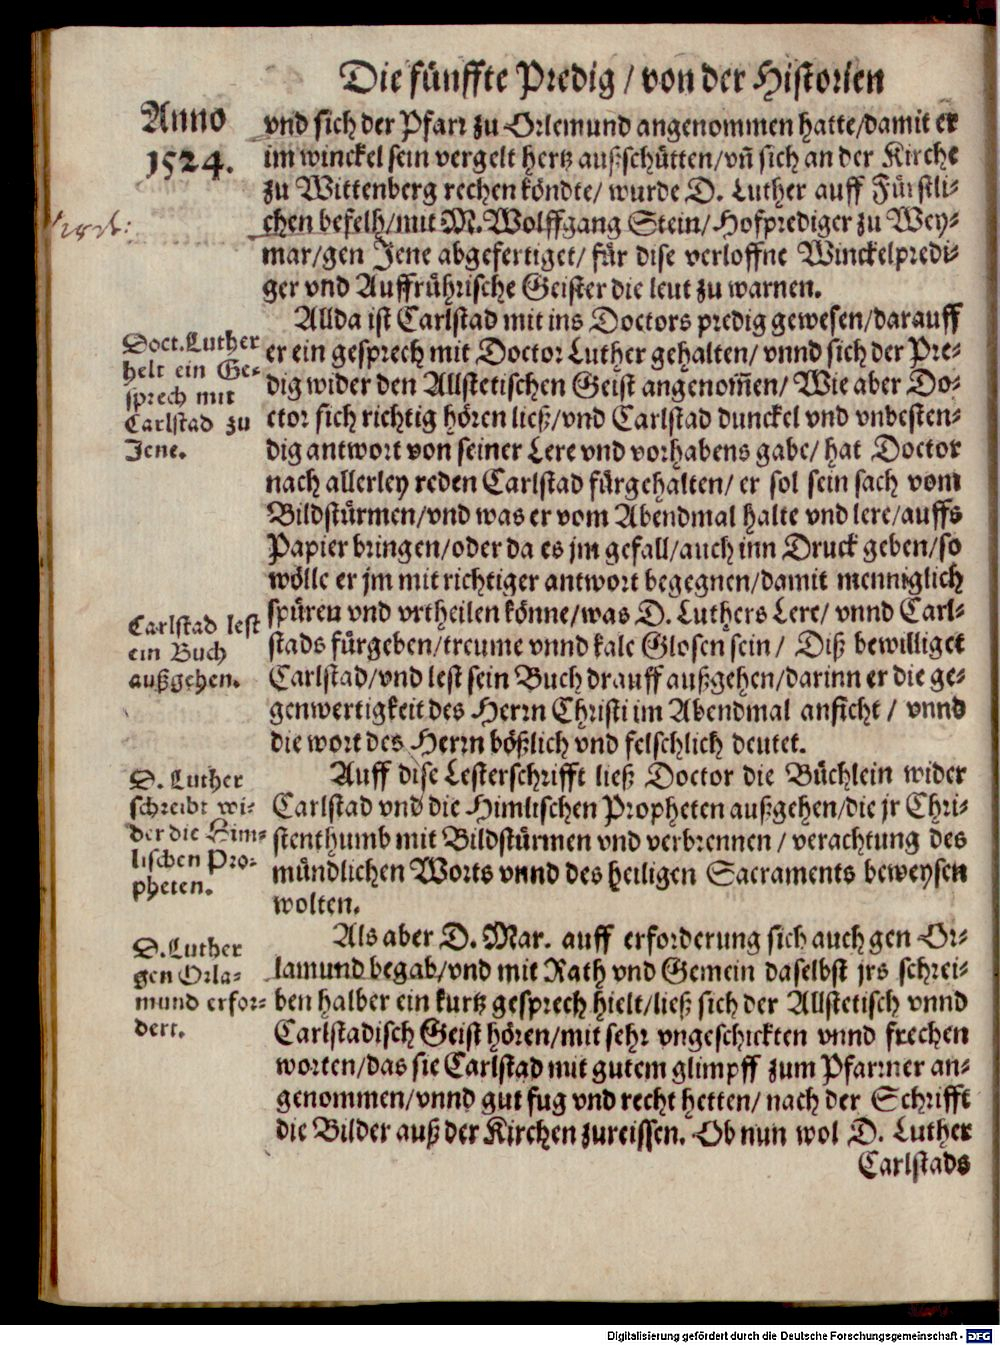 Die fünffte Predig / von der Historien
Anno
1524.
vnd sich der Pfarr zu Orlemund angenommen hatte/damit er
im winckel sein vergelt hertz außschütten/vñ sich an der Kirche
zu Wittenberg rechen köndte/ wurde D. Luther auff Fürstli-
chen befelh/mit M. Wolffgang Stein/ Hofprediger zu Wey-
mar/gen Jene abgefertiget/ für dise verloffne Winckelpredi-
ger vnd Auffrührische Geister die leut zu warnen.
Doct. Luther
helt ein Ge-
sprech mit
Carlstad zu
Jene.
Allda ist Carlstad mit ins Doctors predig gewesen/darauff
er ein gesprech mit Doctor Luther gehalten/ vnnd sich der Pre-
dig wider den Allstetischen Geist angenom̃en/ Wie aber Do-
ctor sich richtig hören ließ/vnd Carlstad dunckel vnd vnbesten-
dig antwort von seiner Lere vnd vorhabens gabe/ hat Doctor
nach allerley reden Carlstad fürgehalten/ er sol sein sach vom
Bildstürmen/vnd was er vom Abendmal halte vnd lere/auffs
Papier bringen/oder da es jm gefall/auch inn Druck geben/so
wölle er jm mit richtiger antwort begegnen/damit menniglich
spüren vnd vrtheilen könne/was D. Luthers Lere/ vnnd Carl-
stads fürgeben/treume vnnd kale Glosen sein/ Diß bewilliget
Carlstad/vnd lest sein Buch drauff außgehen/darinn er die ge-
genwertigkeit des Herrn Christi im Abendmal anficht / vnnd
die wort des Herrn bößlich vnd felschlich deutet.
Carlstad lest
ein Buch
außgehen.
D. Luther
schreibt wi-
der die Him-
lischen Pro-
pheten.
Auff dise Lesterschrifft ließ Doctor die Büchlein wider
Carlstad vnd die Himlischen Propheten außgehen/die jr Chri-
stenthumb mit Bildstürmen vnd verbrennen / verachtung des
mündlichen Worts vnnd des heiligen Sacraments beweysen
wolten.
D. Luther
gen Orla-
mund erfor-
dert.
Als aber D. Mar. auff erforderung sich auch gen Or-
lamund begab/vnd mit Rath vnd Gemein daselbst jrs schrei-
ben halber ein kurtz gesprech hielt/ließ sich der Allstetisch vnnd
Carlstadisch Geist hören/mit sehr vngeschickten vnnd frechen
worten/das sie Carlstad mit gutem glimpff zum Pfarrner an-
genommen/vnnd gut fug vnd recht hetten/ nach der Schrifft
die Bilder auß der Kirchen zureissen. Ob nun wol D. Luther
Carlstads
Digitalisierung gefördert durch die Deutsche Forschungsgemeinschaft - DFG